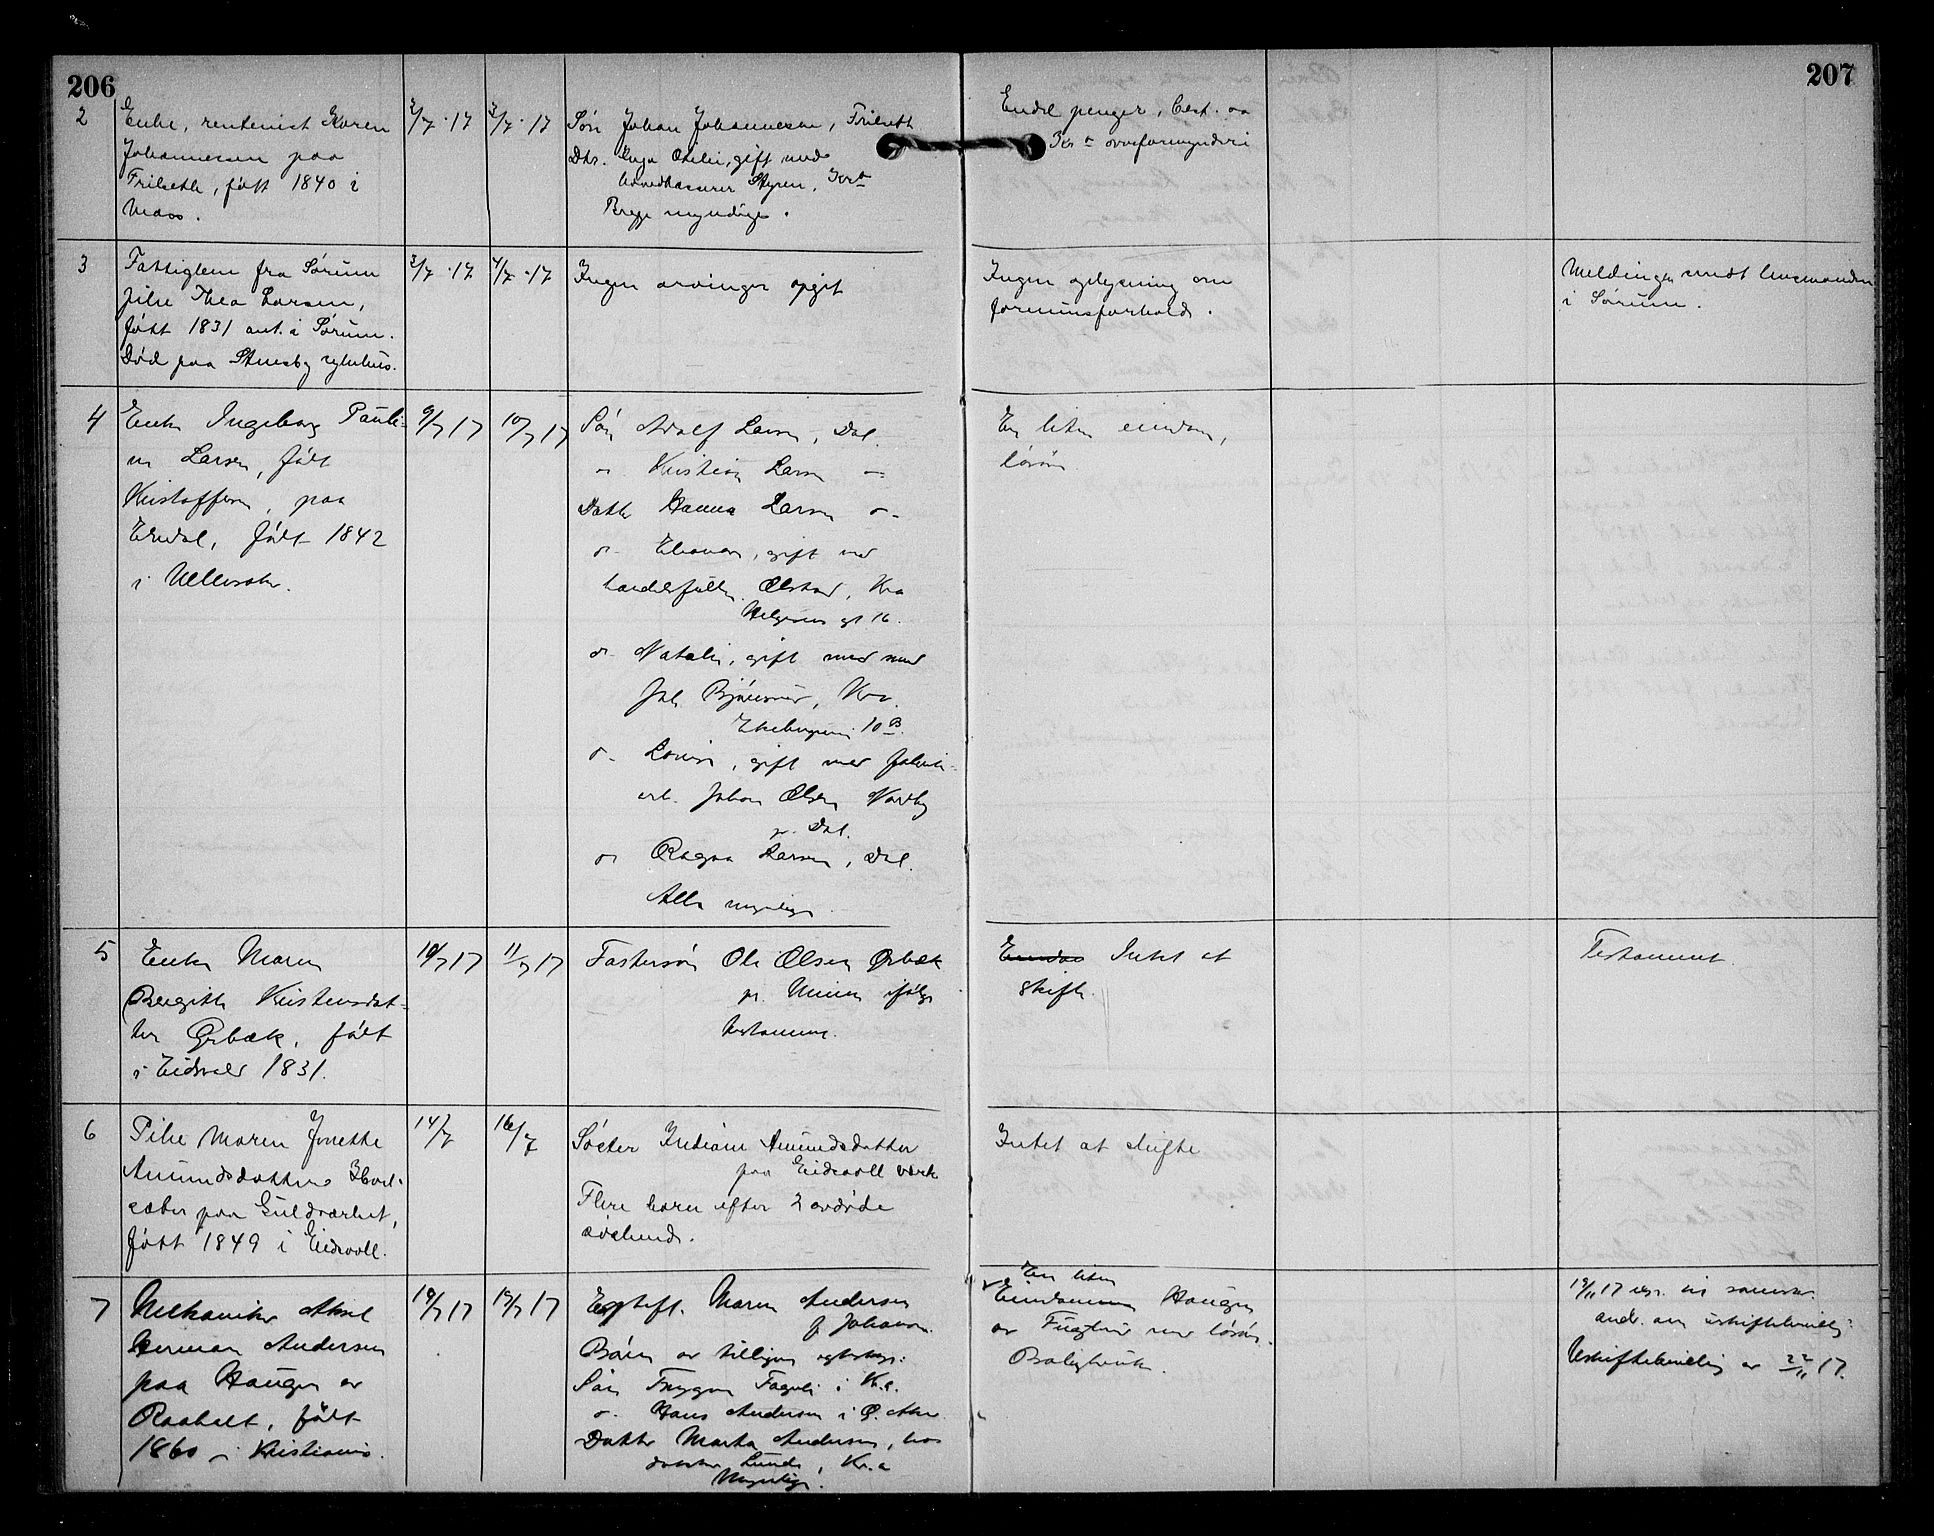 206
207
2
Enke, rentenist Karen
Johannessen paa
Frilseth, født 1840 i
Næss.
2/7 · 17
3/7 · 17
Søn Johan Johannessen, Frilseth
Dtr. Inga Otilie, gift med
hovedkasserer Styren, Kr.a
Begge myndige.
Endel penger, best. av
overformynderi
3
Fattiglem fra Sørum
pike Thea Larsen,
født 1831 ant. i Sørum.
Død paa Stensby sykehus.
2/7 · 17
4/7 · 17
Ingen arvinger opgit
Ingen oplysning om
formuesforhold.
Meldingen sendt lensmanden
i Sørum.
4
Enke Ingeborg Pauli-
ne Larsen, født
Kristoffersen, paa
født 1842
i Ullensaker.
9/7 17
10/7 17
Søn Adolf Larsen, Dal.
" Kristian Larsen "
Datter Hanna Larsen "
" gift med
Ølstad, Kra
gt 16.
" Natalie, gift med
Joh. Kra.
10 B.
" Lovise, gift med fabrik-
arb. Johan Olsen Nordby
pr. Dal.
" Ragna Larsen, Dal.
Alle myndige.
En liten eiendom,
løsøre
5
Enke Maren
Bergitte Kristensdat-
ter Ørbæk, født
i Eidsvold 1831.
10/7 17
11/7 17
Fastersøn Ole Olsen Ørbæk
pr. Minne ifølge
testamente.
Intet at
skifte.
Testament
6
Pike Maren Jonette
Amundsdatter
sæter paa Guldværket,
født 1849 i Eidsvoll.
14/7
16/7
Søster Indiane Amundsdatter
paa Eidsvoll værk
Flere barn efter 2 avdøde
søskende.
Intet at skifte
7
Mekaniker Aksel
Herman Andersen
paa Haugen av
Raaholt, født
1860 i Kristiania.
18/7 17
19/7 17
Egtef. Maren Andersen
f. Johansen.
Børn av tidligere egteskap:
Søn Trygve Fagerli i Kr.a.
" Hans Andersen i Ø. Aker.
Datter Marta Andersen, hos
Lunde, Kr.a
Myndige.
En liten
Eiendommen Haugen
av med løsøre.
Boligbruk.
19/11 17
andr. om uskiftebevilling
Uskiftebevilling av 22/11 17.